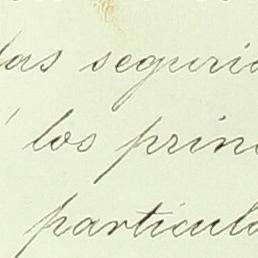 las seguri
á los prin
particula